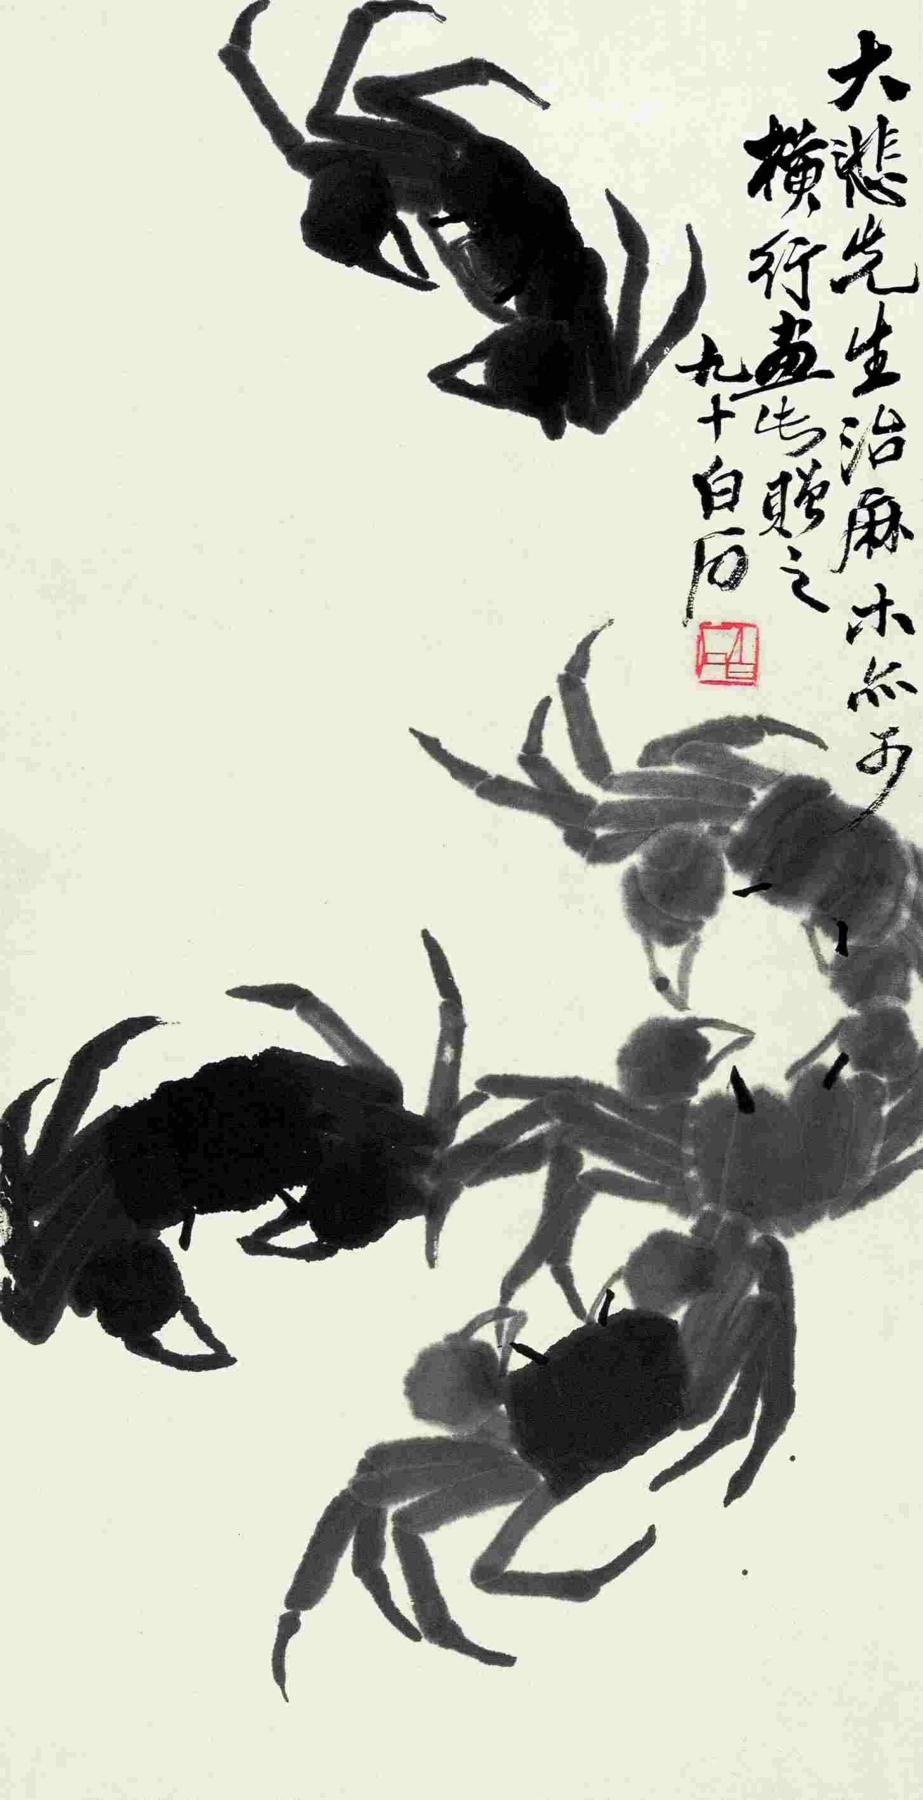 大悲先生治麻木亦可
横行画此赠之
九十白石